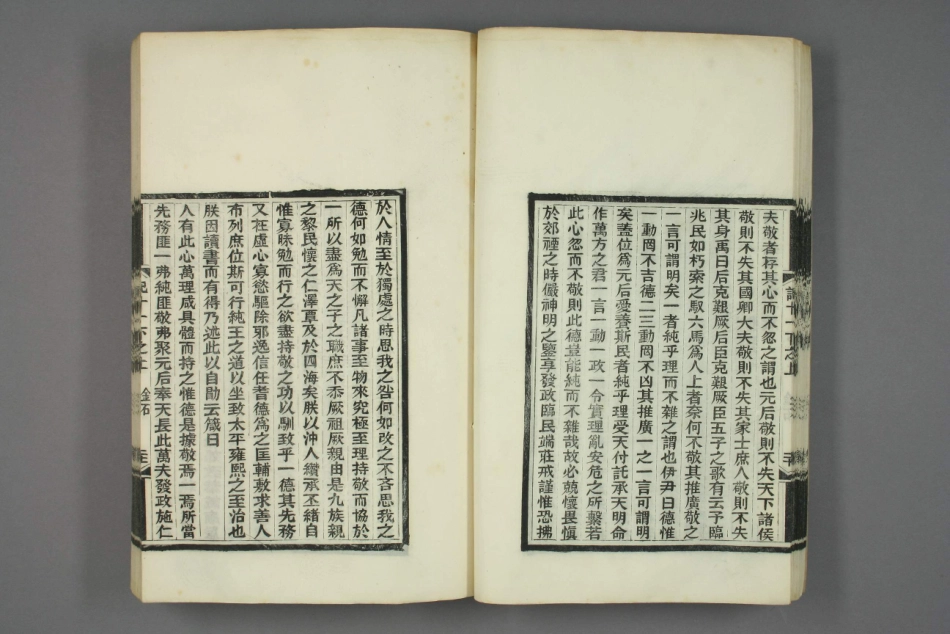 夫敬者存其心而不忽之謂也元后敬則不失天下諸侯
敬則不失其國卿大夫敬則不失其家士庶人敬則不失
其身禹曰后克艱厥后臣克艱厥臣五子之歌有云予臨
兆民如朽索之馭六馬爲人上者奈何不敬其推廣敬之
一言可謂明矣一者純乎理而不雜之謂也伊尹曰德惟
一動罔不吉德二三動罔不凶其推廣一之一言可謂明
矣蓋位爲元后受天付託承天明命
作萬方之君一言一動一政一令實理亂安危之所繫若
此心忽而不敬則此德豈能純而不雜哉故必兢懷畏愼
於郊禋之時儼神明之鑒享發政臨民端莊戒謹惟恐拂
於人情至於獨處之時思我之咎何如改之不吝思我之
德何如勉而不懈凡諸事至物來究極至理持敬而協於
一所以盡爲天之子之職庶不忝厥祖厥親由是九族親
之黎民懷之仁澤覃及於四海矣朕以沖人纘承丕緒自
惟寡昧勉而行之欲盡持敬之功以馴致乎一德其先務
又在虛心寡慾驅除邪逸信任耆德爲之匡輔敷求善人
布列庶位斯可行純王之道以坐致太平雍熙之至治也
朕因讀書而有得乃述此以自勖云箴曰
人有此心萬理咸具體而持之惟德是據敬焉一焉所當
先務匪一弗純匪敬弗聚元后奉天長此萬夫發政施仁
記十一下之上 金石